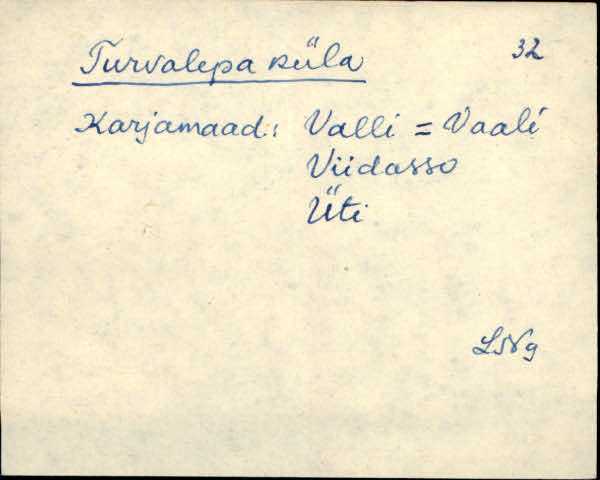 Turvalepa küla 32
Karjamaad: Valli = Vaali
Viidasso
Üti